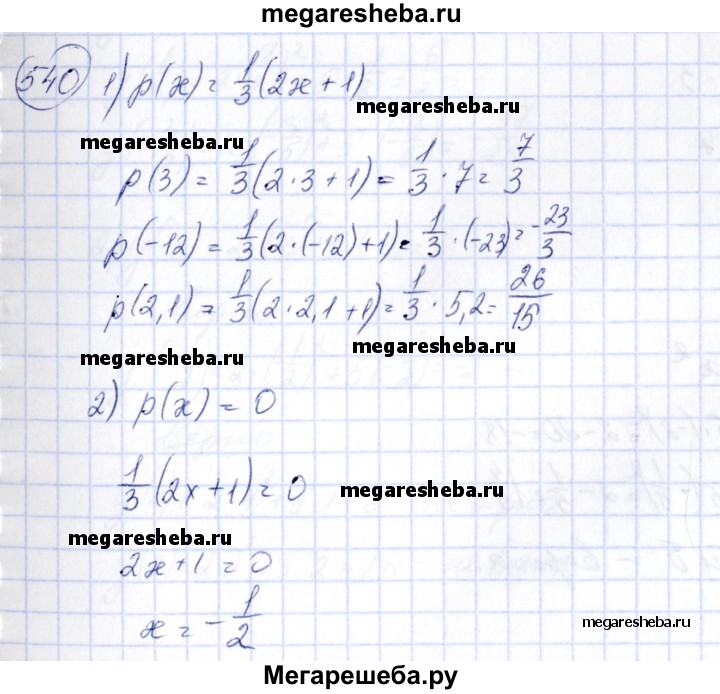 megaresheba.ru
540 1) p(x) = 1/3 (2x + 1)
megaresheba.ru
megaresheba.ru
p(3) = 1/3 (2·3 + 1) = 1/3 · 7 = 7/3
p(-12) = 1/3 (2·(-12)+1) = 1/3 · (-23) = -23/3
p(2,1) = 1/3 (2·2,1 + 1) = 1/3 · 5,2 = 26/15
megaresheba.ru
megaresheba.ru
2) p(x) = 0
1/3 (2x + 1) = 0
megaresheba.ru
megaresheba.ru
2x + 1 = 0
x = - 1/2
megaresheba.ru
Мегарешеба.ру